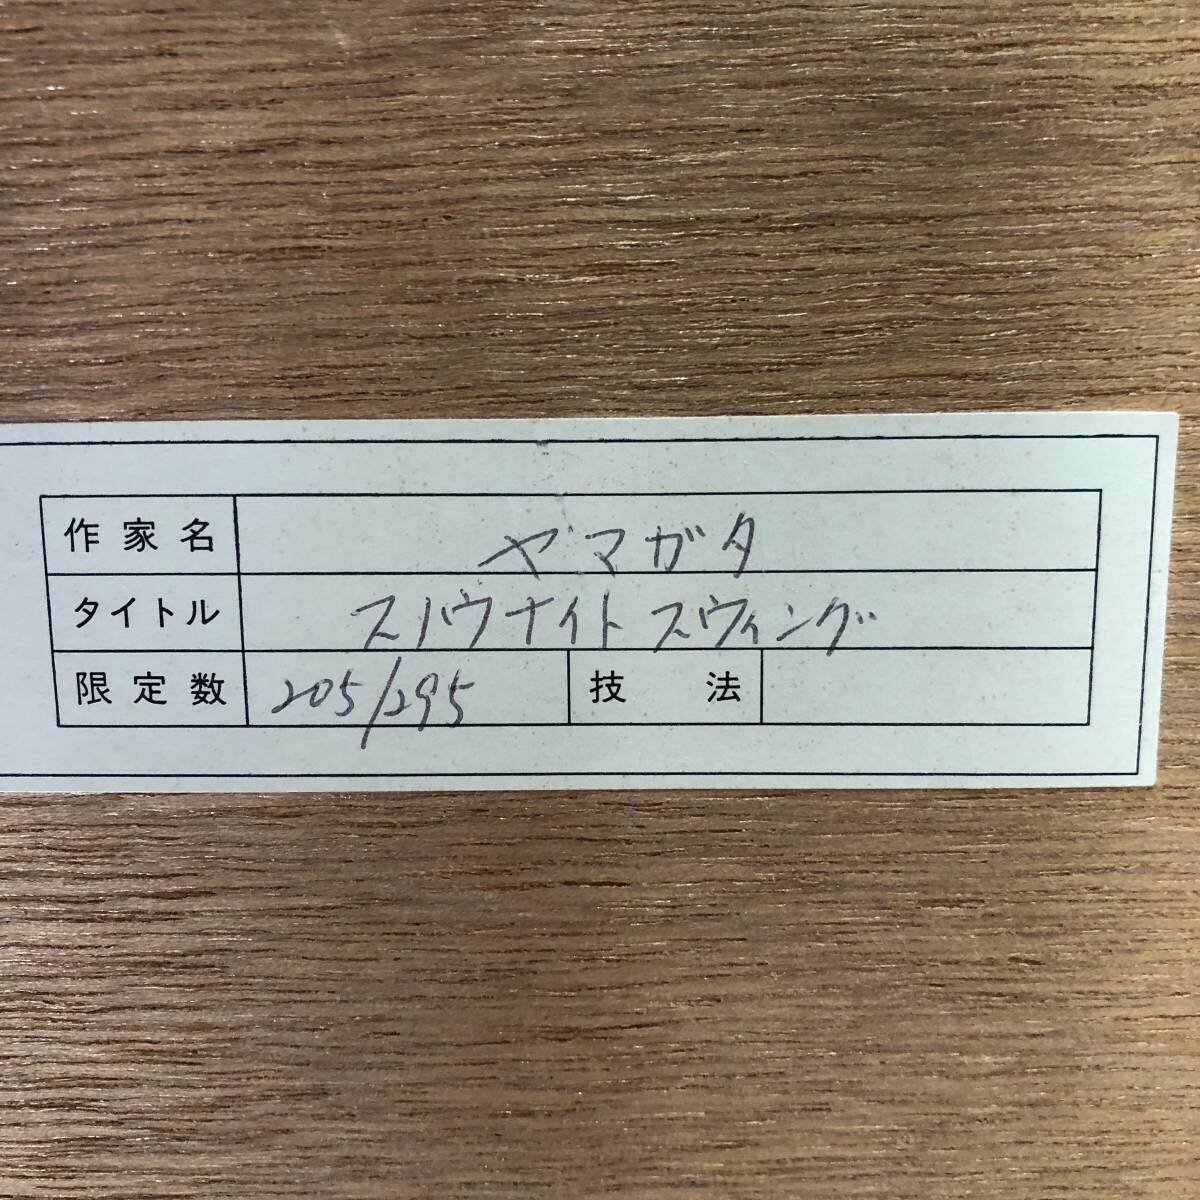 作家名 ヤマガタ
タイトル スノウナイト スウィング
限定数 205/295 技法